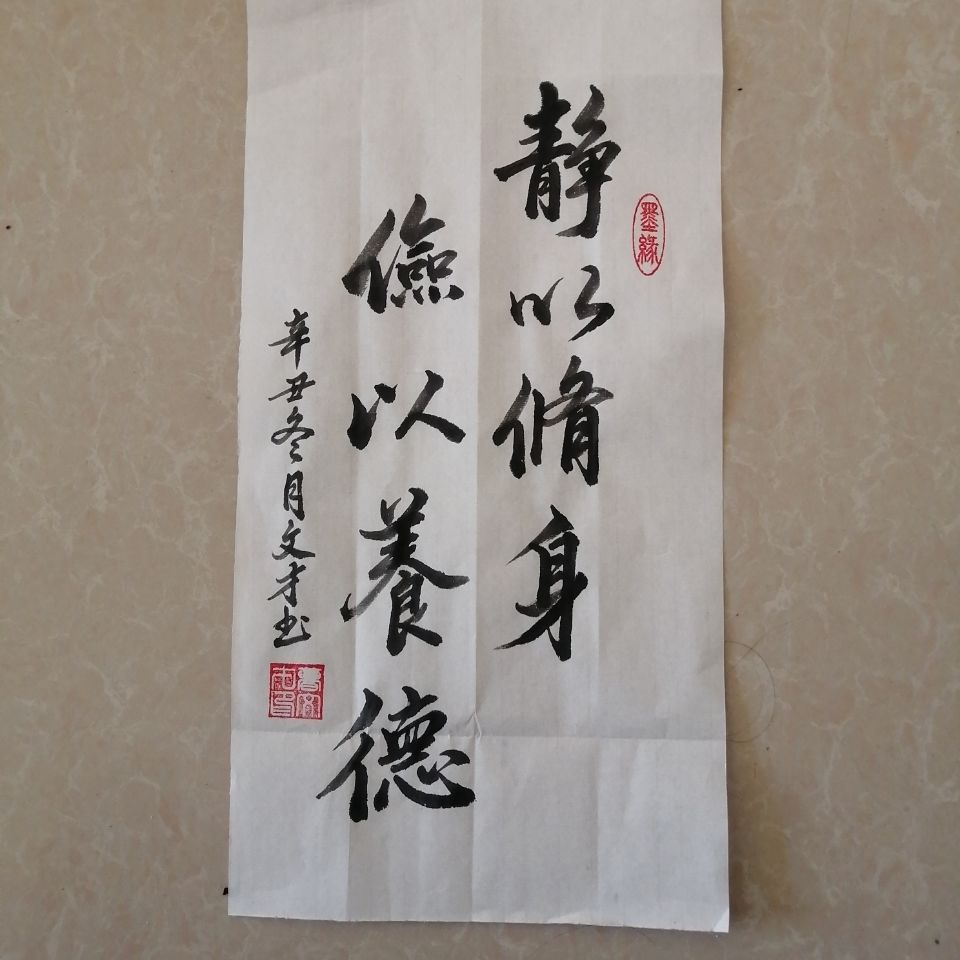 墨缘
静以脩身
儉以養德
辛丑冬月文才书